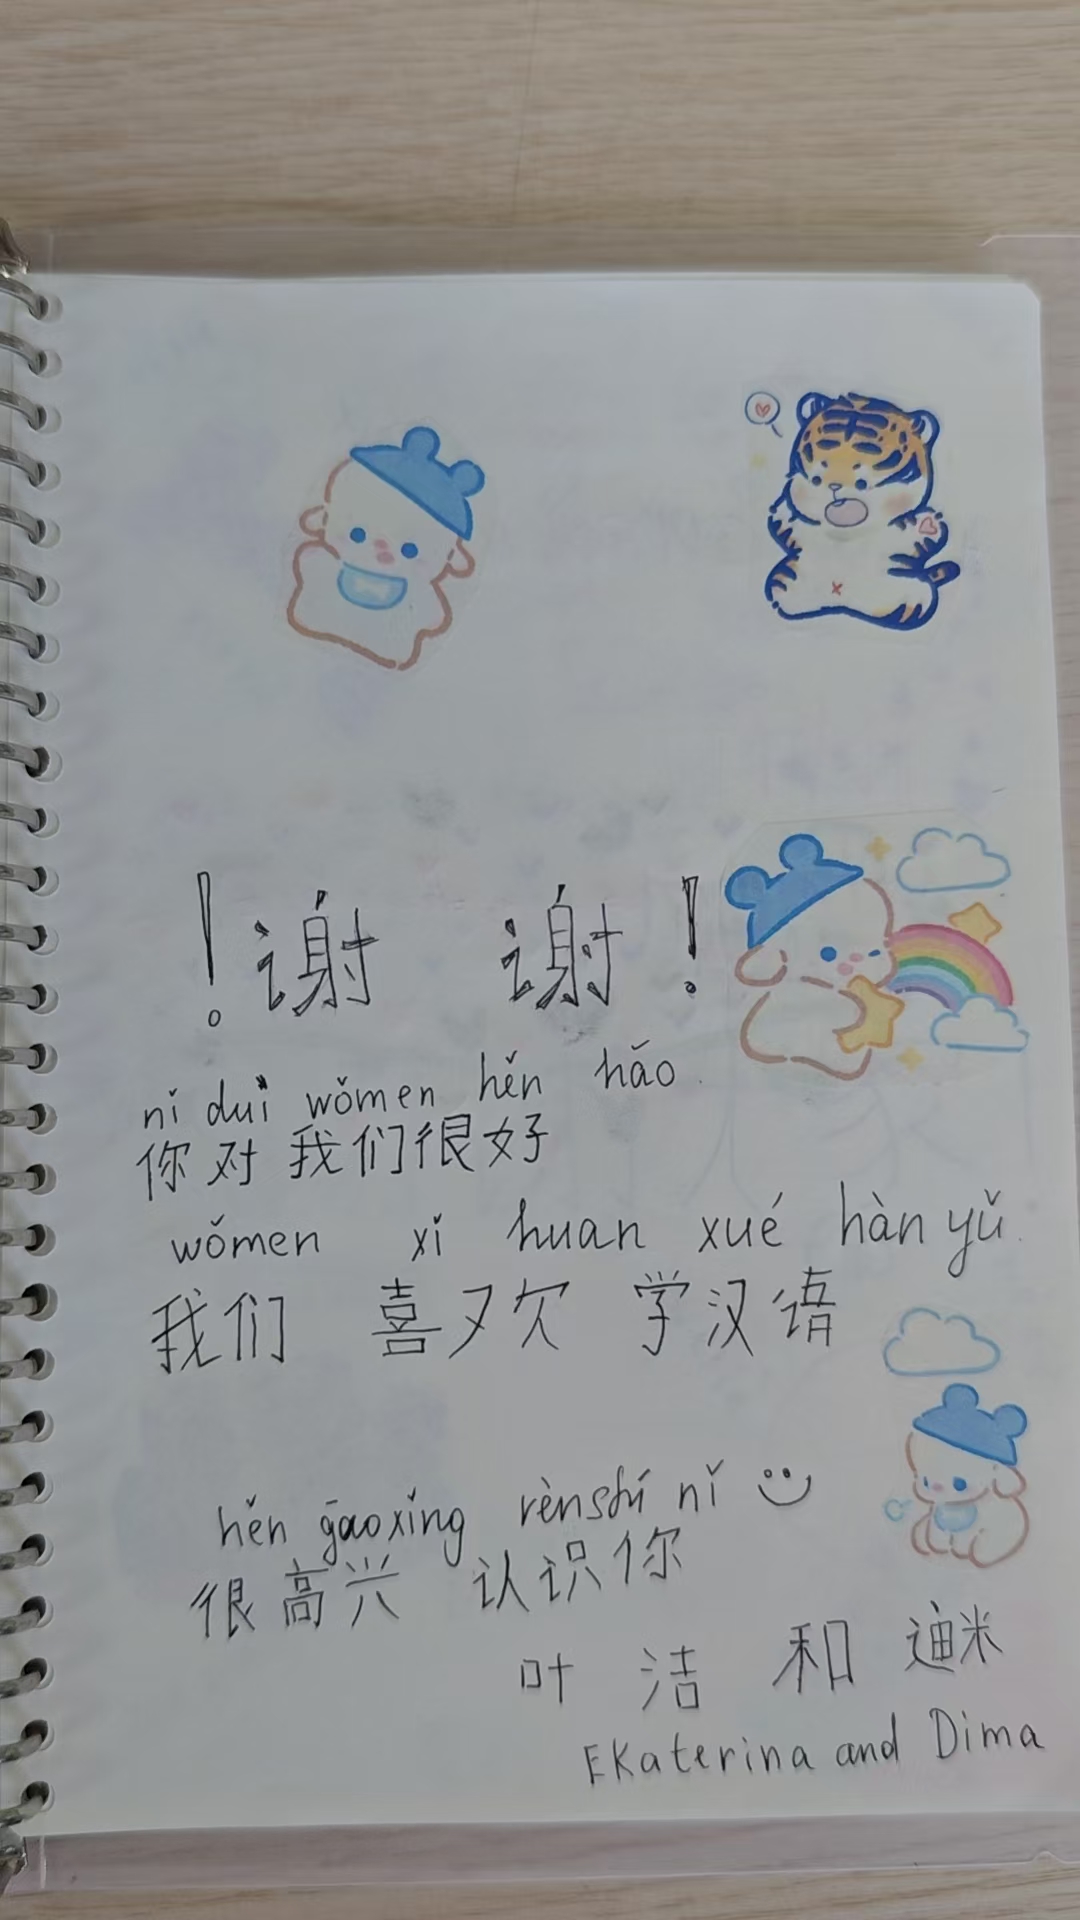 !谢 谢!
nǐ duì wǒmen hěn hǎo.
你对我们很好
wǒmen xǐ huan xué hàn yǔ.
我们 喜欢 学汉语
hěn gāoxìng rènshí nǐ
很高兴 认识你
叶 洁 和 迪米
EKaterina and Dima